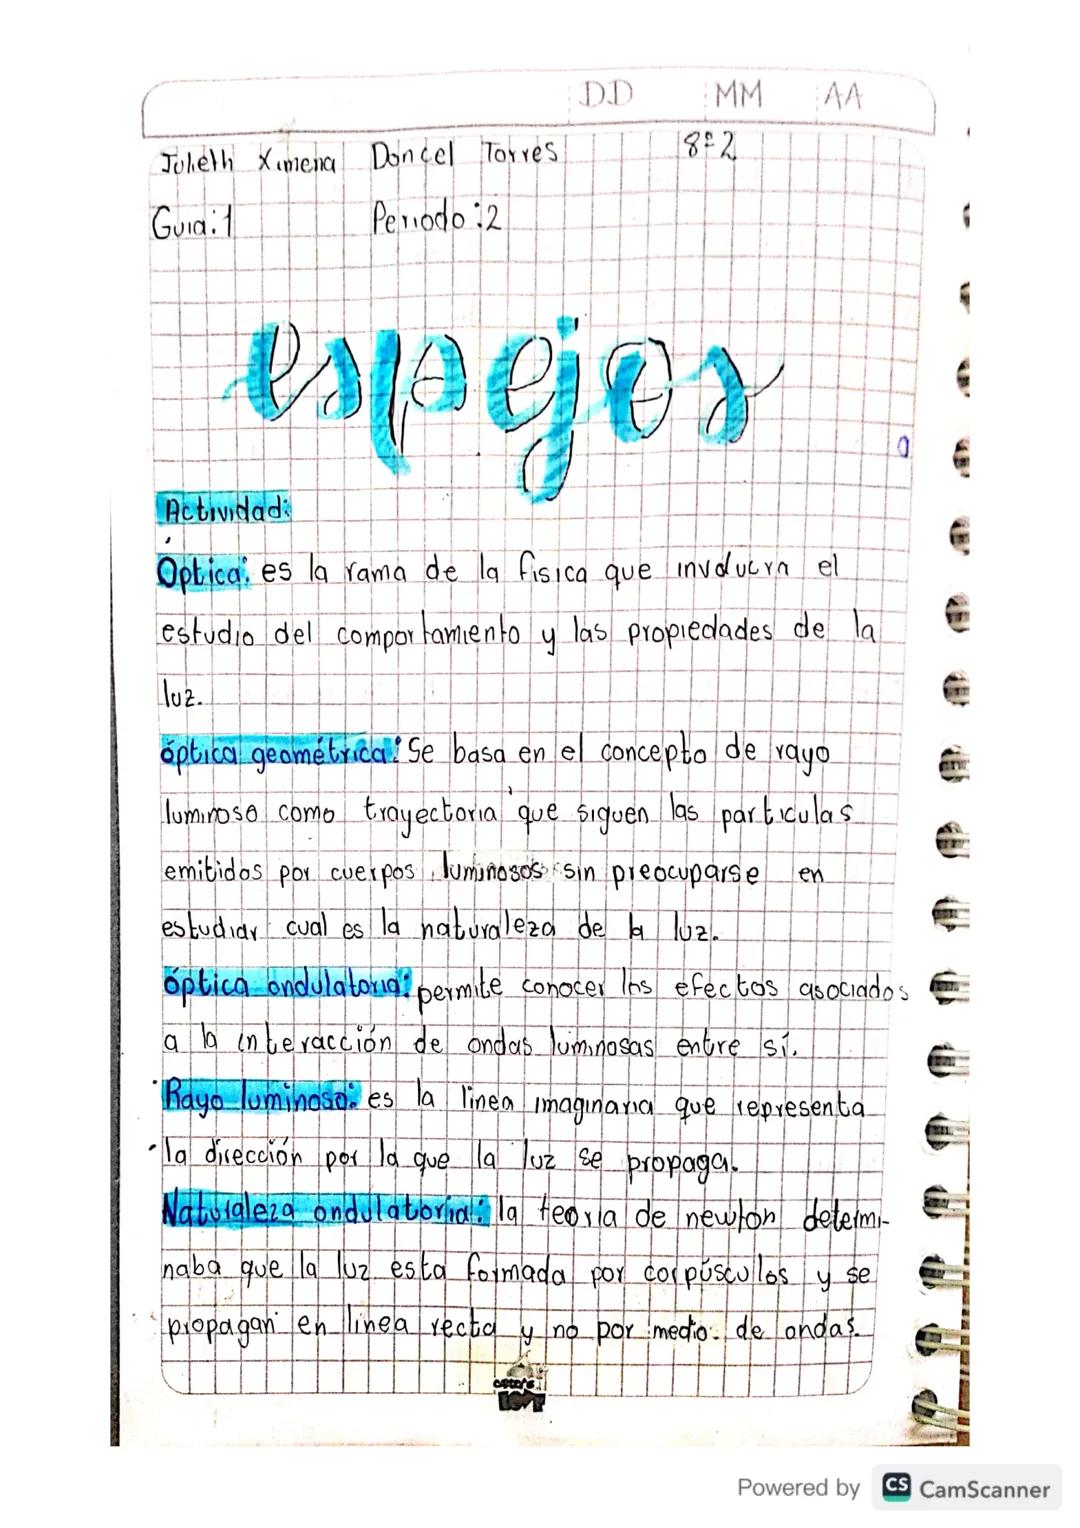 DD MM AA
Julieth Ximena Doncel Torres 8º2
Guia:1 Periodo:2
espejos
Actividad:
Óptica: es la rama de la fisica que involucra el
estudio del comportamiento y las propiedades de la
luz.
óptica geométrica: Se basa en el concepto de rayo
luminoso como trayectoria que siguen las particulas
emitidas por cuerpos luminosos sin preocuparse en
estudiar cual es la naturaleza de la luz.
óptica ondulatoria: permite conocer los efectos asociados
a la interacción de ondas luminosas entre sí.
Rayo luminoso: es la linea imaginaria que representa
la dirección por la que la luz se propaga.
Naturaleza ondulatoria: la teoria de newton determi-
naba que la luz esta formada por corpúsculos y se
propagan en linea recta y no por medio de ondas.
LOVE
Powered by CS CamScanner